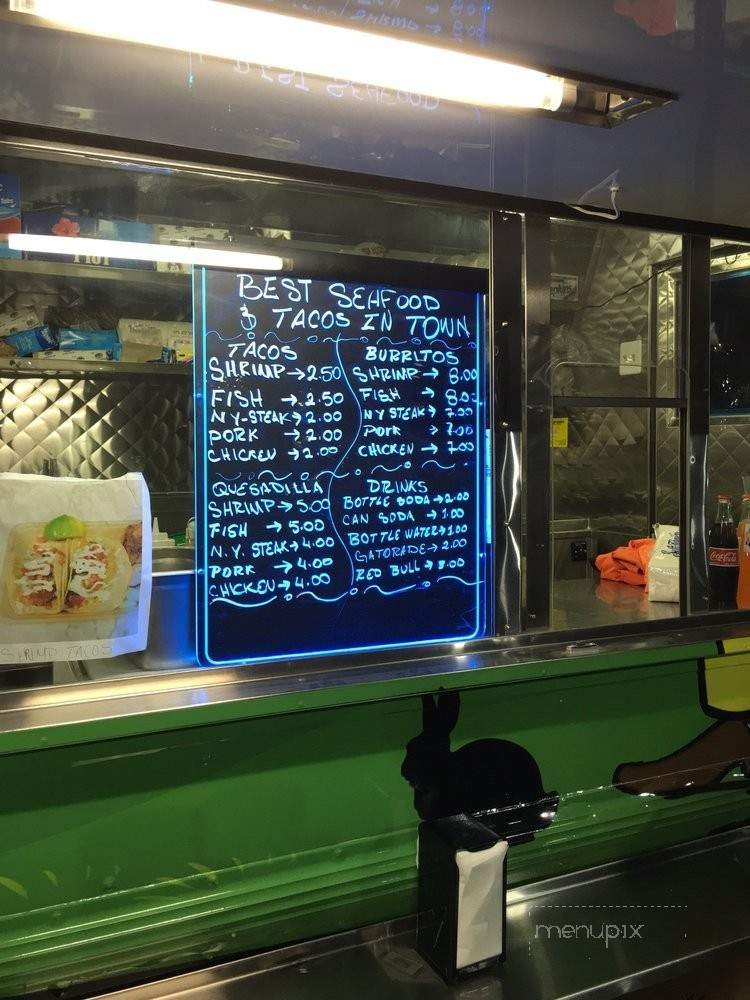 BEST SEAFOOD
$ TACOS IN TOWN
TACOS
SHRIMP → 2.50
FISH → 2.50
NY-STEAK → 2.00
PORK → 2.00
CHICKEN → 2.00
BURRITOS
SHRIMP → 8.00
FISH → 8.0
NY STEAK → 7.00
PORK → 7.00
CHICKEN → 7.00
QUESADILLA
SHRIMP → 5.00
FISH → 5.00
N.Y. STEAK → 4.00
PORK → 4.00
CHICKEN → 4.00
DRINKS
BOTTLE SODA → 2.00
CAN SODA → 1.00
BOTTLE WATER → 1.00
GATORADE → 2.00
RED BULL → 3.00
SHRIMP TACOS
Coca-Cola
menupix